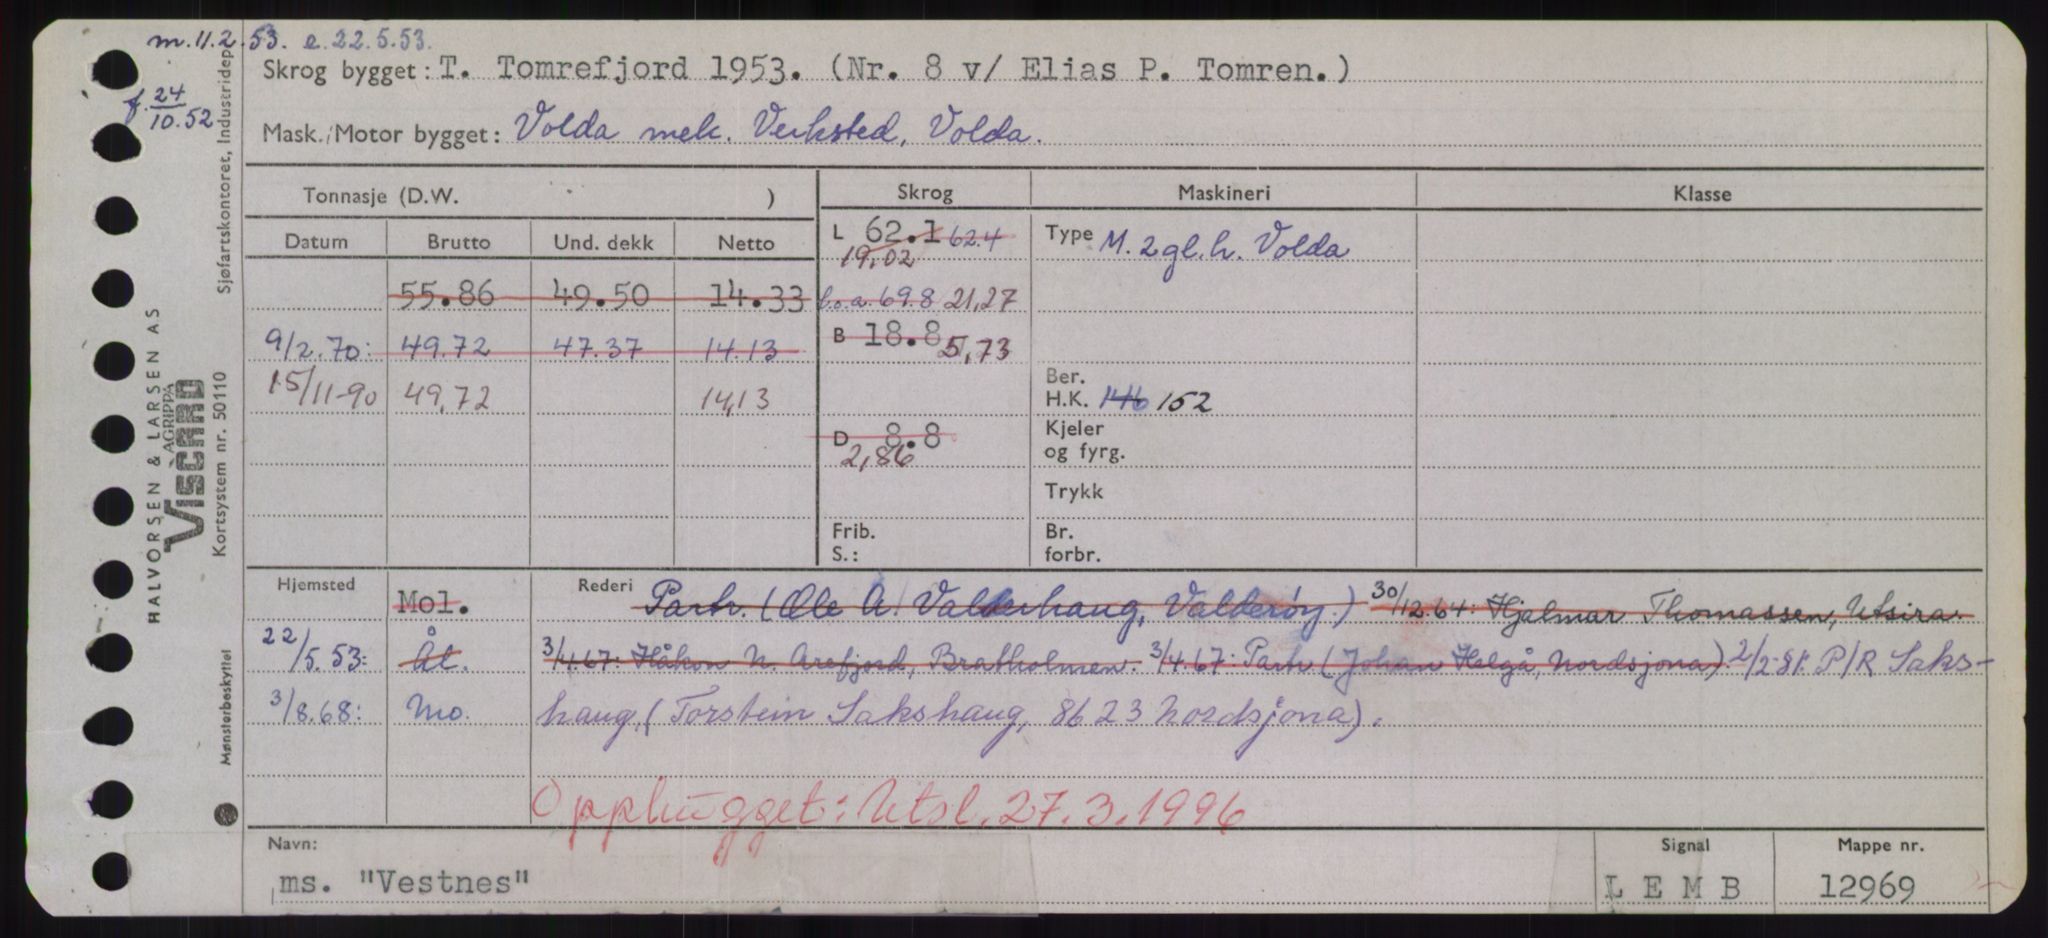 m. 11.2.53. e. 22.5.53.
f. 24/10.52
Skrog bygget: T. Tomrefjord 1953. (Nr. 8 v/ Elias P. Tomren.)
Mask./Motor bygget: Volda mek. Verksted, Volda.
Tonnasje (D.W. ) Skrog Maskineri Klasse
Datum Brutto Und. dekk Netto
L 62.1 62.4
19,02
Type M. 2 gl. h. Volda
55.86 49.50 14.33
l.o.a. 69.8 21,27
9/2.70: 49.72 47.37 14.13
B 18.8 5,73
15/11-90 49,72 14,13
Ber.
H.K. 146 152
D 8.8
2,86
Kjeler
og fyrg.
Trykk
Frib.
S.:
Br.
forbr.
Hjemsted Mol. Rederi Partr. (Ole A. Valderhaug, Valderøy.) 30/12.64: Hjalmar Thomassen, Utsira.
22/5.53: Ål. 3/4.67: Håkon N. Arefjord, Bratholmen. 3/4.67: Partr (Johan Helgå, Nordsjona). 2/2-81: P/R Saks-
3/8.68: Mo. haug, (Torstein Sakshaug, 8623 Nordsjona).
Opphugget: Utsl. 27.3.1996
Navn: Signal Mappe nr.
ms. "Vestnes" L E M B 12969
Sjøfartskontoret, Industridep
HALVORSEN & LARSEN AS
AGRIPPA
VISCARD
Kortsystem nr. 50110
Mønsterbeskyttet